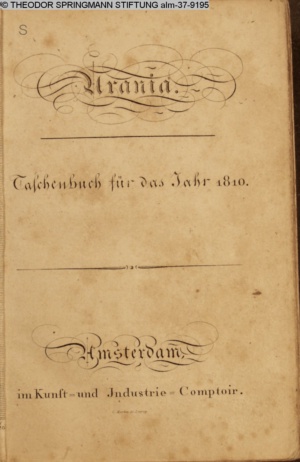 © THEODOR SPRINGMANN STIFTUNG alm-37-9195
S
Urania.
Taſchenbuch für das Jahr 1810.
Amsterdam,
im Kunſt-und Jnduſtrie-Comptoir.